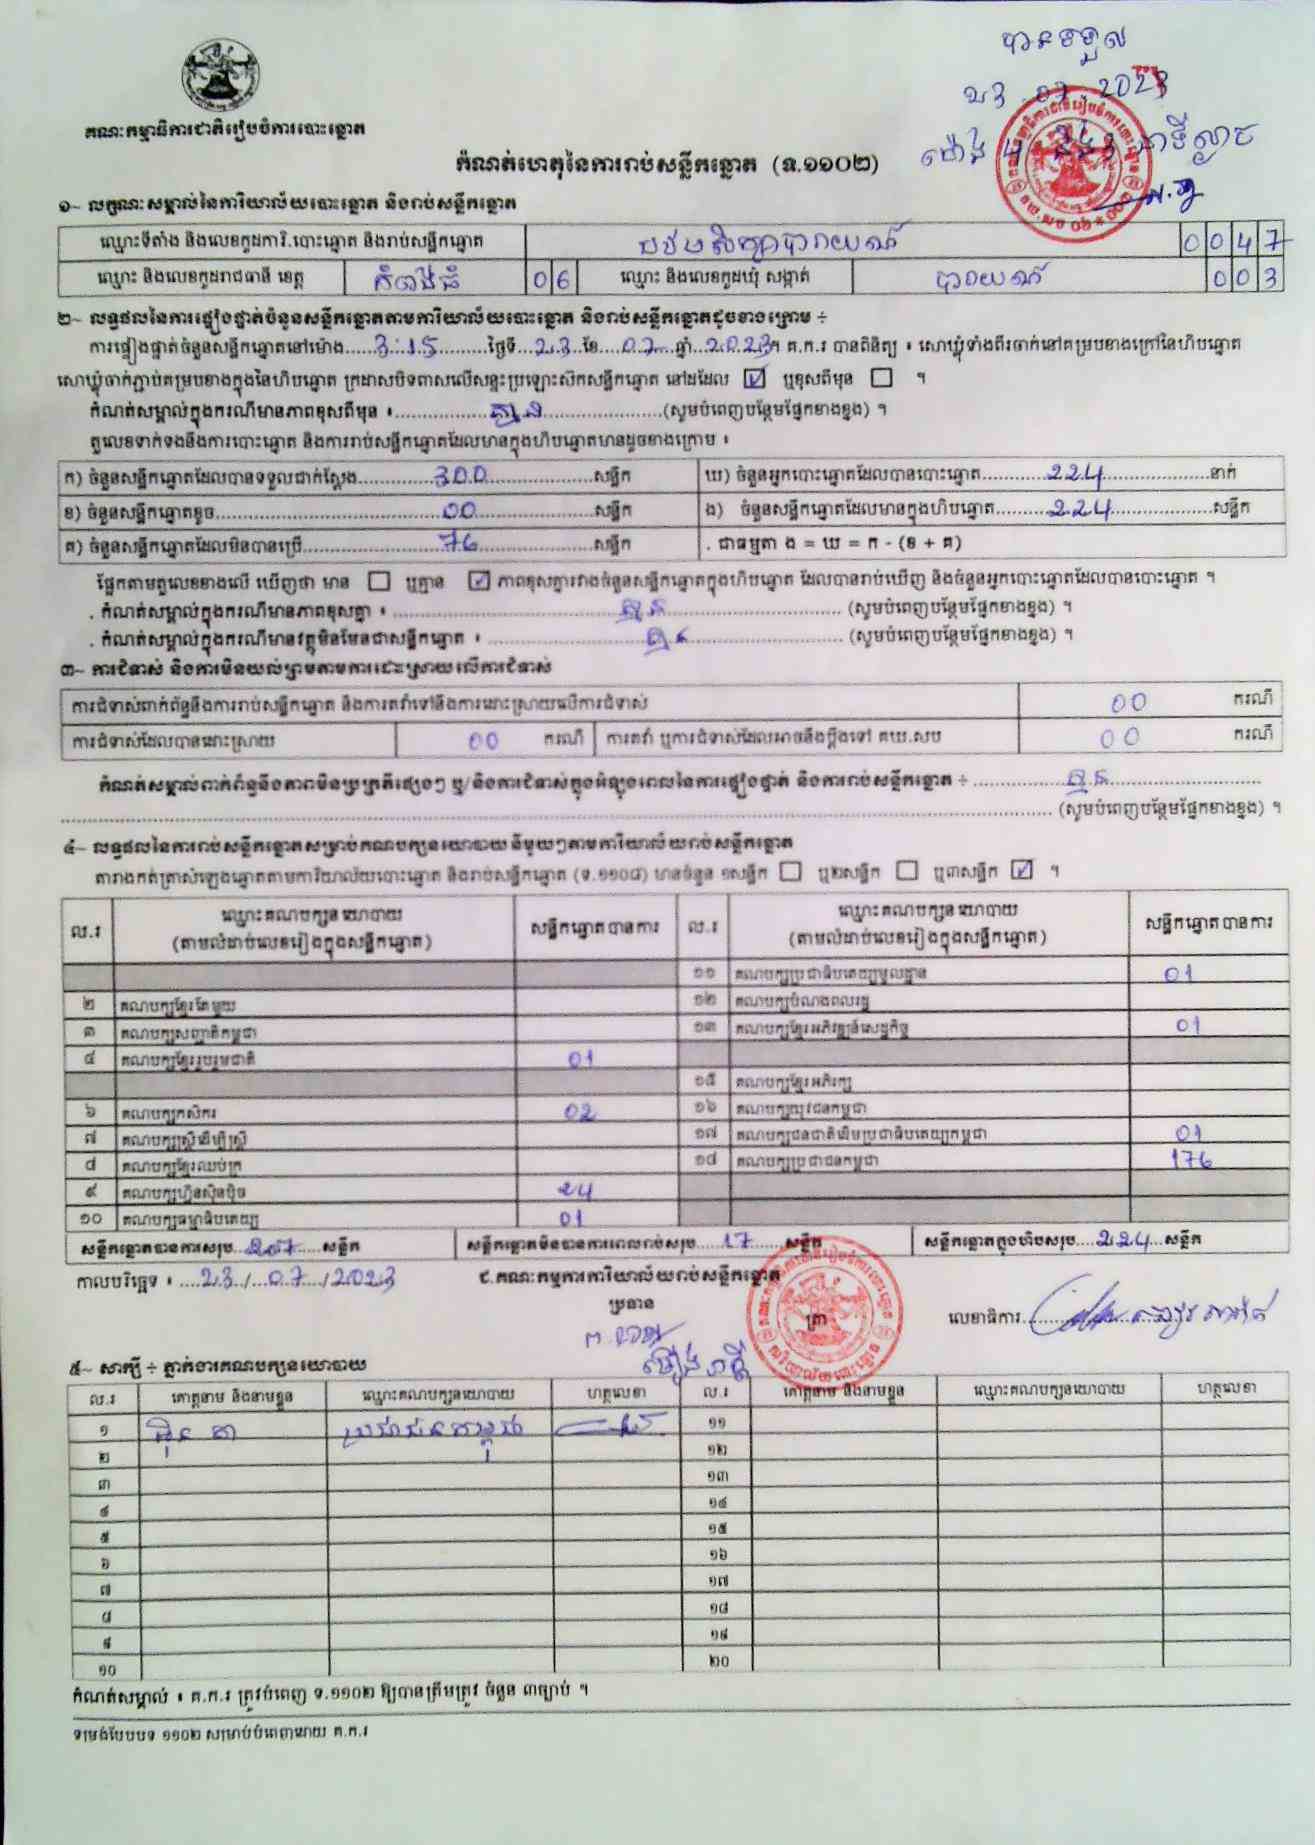 បានទទួល
23.07.2023
គណៈកម្មាធិការជាតិរៀបចំការបោះឆ្នោត
ម៉ោង 4
កំណត់ហេតុនៃការរាប់សន្លឹកឆ្នោត (ទ.១១០២)
១~ លក្ខណៈសម្គាល់នៃការិយាល័យបោះឆ្នោត និងរាប់សន្លឹកឆ្នោត
ឈ្មោះទីតាំង និងលេខកូដការិ.បោះឆ្នោត និងរាប់សន្លឹកឆ្នោត បឋមសិក្សាបារាយណ៍ 0047
ឈ្មោះ និងលេខកូដរាជធានី ខេត្ត កំពង់ធំ 06 ឈ្មោះ និងលេខកូដឃុំ សង្កាត់ បារាយណ៍ 003
២~ លទ្ធផលនៃការផ្ទៀងផ្ទាត់ចំនួនសន្លឹកឆ្នោតតាមការិយាល័យបោះឆ្នោត និងរាប់សន្លឹកឆ្នោតដូចខាងក្រោម ÷
ការផ្ទៀងផ្ទាត់ចំនួនសន្លឹកឆ្នោតនៅម៉ោង 3:15 ថ្ងៃទី 23 ខែ 07 ឆ្នាំ 2023។ គ.ក.រ បានពិនិត្យ ៖ សោឃ្លុំទាំងពីរចាក់នៅគម្របខាងក្រៅនៃហិបឆ្នោត
សោឃ្លុំចាក់ភ្ជាប់គម្របខាងក្នុងនៃហិបឆ្នោត ក្រដាសបិទពាសលើសន្ទះប្រឡោះស៊កសន្លឹកឆ្នោត នៅដដែល ☑ ឬខុសពីមុន ☐ ។
កំណត់សម្គាល់ក្នុងករណីមានភាពខុសពីមុន ៖ គ្មាន (សូមបំពេញបន្ថែមផ្នែកខាងខ្នង) ។
តួលេខទាក់ទងនឹងការបោះឆ្នោត និងការរាប់សន្លឹកឆ្នោតដែលមានក្នុងហិបឆ្នោតមានដូចខាងក្រោម ៖
ក) ចំនួនសន្លឹកឆ្នោតដែលបានទទួលជាក់ស្តែង 300 សន្លឹក ឃ) ចំនួនអ្នកបោះឆ្នោតដែលបានបោះឆ្នោត 224 នាក់
ខ) ចំនួនសន្លឹកឆ្នោតខូច 00 សន្លឹក ង) ចំនួនសន្លឹកឆ្នោតដែលមានក្នុងហិបឆ្នោត 224 សន្លឹក
គ) ចំនួនសន្លឹកឆ្នោតដែលមិនបានប្រើ 76 សន្លឹក . ជាធម្មតា ង = ឃ = ក - (ខ + គ)
ផ្អែកតាមតួលេខខាងលើ ឃើញថា មាន ☐ ឬគ្មាន ☑ ភាពខុសគ្នារវាងចំនួនសន្លឹកឆ្នោតក្នុងហិបឆ្នោត ដែលបានរាប់ឃើញ និងចំនួនអ្នកបោះឆ្នោតដែលបានបោះឆ្នោត ។
. កំណត់សម្គាល់ក្នុងករណីមានភាពខុសគ្នា ៖ គ្មាន (សូមបំពេញបន្ថែមផ្នែកខាងខ្នង) ។
. កំណត់សម្គាល់ក្នុងករណីមានវត្ថុមិនមែនជាសន្លឹកឆ្នោត ៖ គ្មាន (សូមបំពេញបន្ថែមផ្នែកខាងខ្នង) ។
៣~ ការជំទាស់ និងការមិនយល់ព្រមតាមការដោះស្រាយលើការជំទាស់
ការជំទាស់ពាក់ព័ន្ធនឹងការរាប់សន្លឹកឆ្នោត និងការតវ៉ាទៅនឹងការដោះស្រាយលើការជំទាស់ 00 ករណី
ការជំទាស់ដែលបានដោះស្រាយ 00 ករណី ការតវ៉ា ឬការជំទាស់ដែលអាចនឹងប្តឹងទៅ គឃ.សប 00 ករណី
កំណត់សម្គាល់ពាក់ព័ន្ធនឹងភាពមិនប្រក្រតីផ្សេងៗ ឬ/និងការជំទាស់ក្នុងអំឡុងពេលនៃការផ្ទៀងផ្ទាត់ និងការរាប់សន្លឹកឆ្នោត ÷ គ្មាន
(សូមបំពេញបន្ថែមផ្នែកខាងខ្នង) ។
៤~ លទ្ធផលនៃការរាប់សន្លឹកឆ្នោតសម្រាប់គណបក្សនយោបាយនីមួយៗតាមការិយាល័យរាប់សន្លឹកឆ្នោត
តារាងកត់ត្រាសំឡេងឆ្នោតតាមការិយាល័យបោះឆ្នោត និងរាប់សន្លឹកឆ្នោត (ទ.១១០៨) មានចំនួន ១សន្លឹក ☐ ឬ២សន្លឹក ☐ ឬ៣សន្លឹក ☑ ។
ល.រ ឈ្មោះគណបក្សនយោបាយ (តាមលំដាប់លេខរៀងក្នុងសន្លឹកឆ្នោត) សន្លឹកឆ្នោតបានការ ល.រ ឈ្មោះគណបក្សនយោបាយ (តាមលំដាប់លេខរៀងក្នុងសន្លឹកឆ្នោត) សន្លឹកឆ្នោតបានការ
១១ គណបក្សប្រជាធិបតេយ្យមូលដ្ឋាន 01
២ គណបក្សខ្មែរតែមួយ ១២ គណបក្សបំណងពលរដ្ឋ
៣ គណបក្សសញ្ជាតិកម្ពុជា ១៣ គណបក្សខ្មែរអភិវឌ្ឍន៍សេដ្ឋកិច្ច 01
៤ គណបក្សខ្មែររួបរួមជាតិ 01
១៥ គណបក្សខ្មែរអភិរក្ស
៦ គណបក្សកសិករ 02 ១៦ គណបក្សយុវជនកម្ពុជា
៧ គណបក្សស្ត្រីដើម្បីស្ត្រី ១៧ គណបក្សជនជាតិដើមប្រជាធិបតេយ្យកម្ពុជា 01
៨ គណបក្សខ្មែរឈប់ក្រ ១៨ គណបក្សប្រជាជនកម្ពុជា 176
៩ គណបក្សហ៊្វុនស៊ិនប៉ិច 24
១០ គណបក្សធម្មាធិបតេយ្យ 01
សន្លឹកឆ្នោតបានការសរុប 207 សន្លឹក សន្លឹកឆ្នោតមិនបានការពេលរាប់សរុប 17 សន្លឹក សន្លឹកឆ្នោតក្នុងហិបសរុប 224 សន្លឹក
កាលបរិច្ឆេទ ៖ 23/07/2023 ជ.គណៈកម្មការការិយាល័យរាប់សន្លឹកឆ្នោត
ប្រធាន ត្រា លេខាធិការ
៥~ សាក្សី ÷ ភ្នាក់ងារគណបក្សនយោបាយ
ល.រ គោត្តនាម និងនាមខ្លួន ឈ្មោះគណបក្សនយោបាយ ហត្ថលេខា ល.រ គោត្តនាម និងនាមខ្លួន ឈ្មោះគណបក្សនយោបាយ ហត្ថលេខា
១ ប្រជាជនកម្ពុជា ១១
២ ១២
៣ ១៣
៤ ១៤
៥ ១៥
៦ ១៦
៧ ១៧
៨ ១៨
៩ ១៩
១០ ២០
កំណត់សម្គាល់ ៖ គ.ក.រ ត្រូវបំពេញ ទ.១១០២ ឱ្យបានត្រឹមត្រូវ ចំនួន ៣ច្បាប់ ។
ទម្រង់បែបបទ ១១០២ សម្រាប់បំពេញដោយ គ.ក.រ